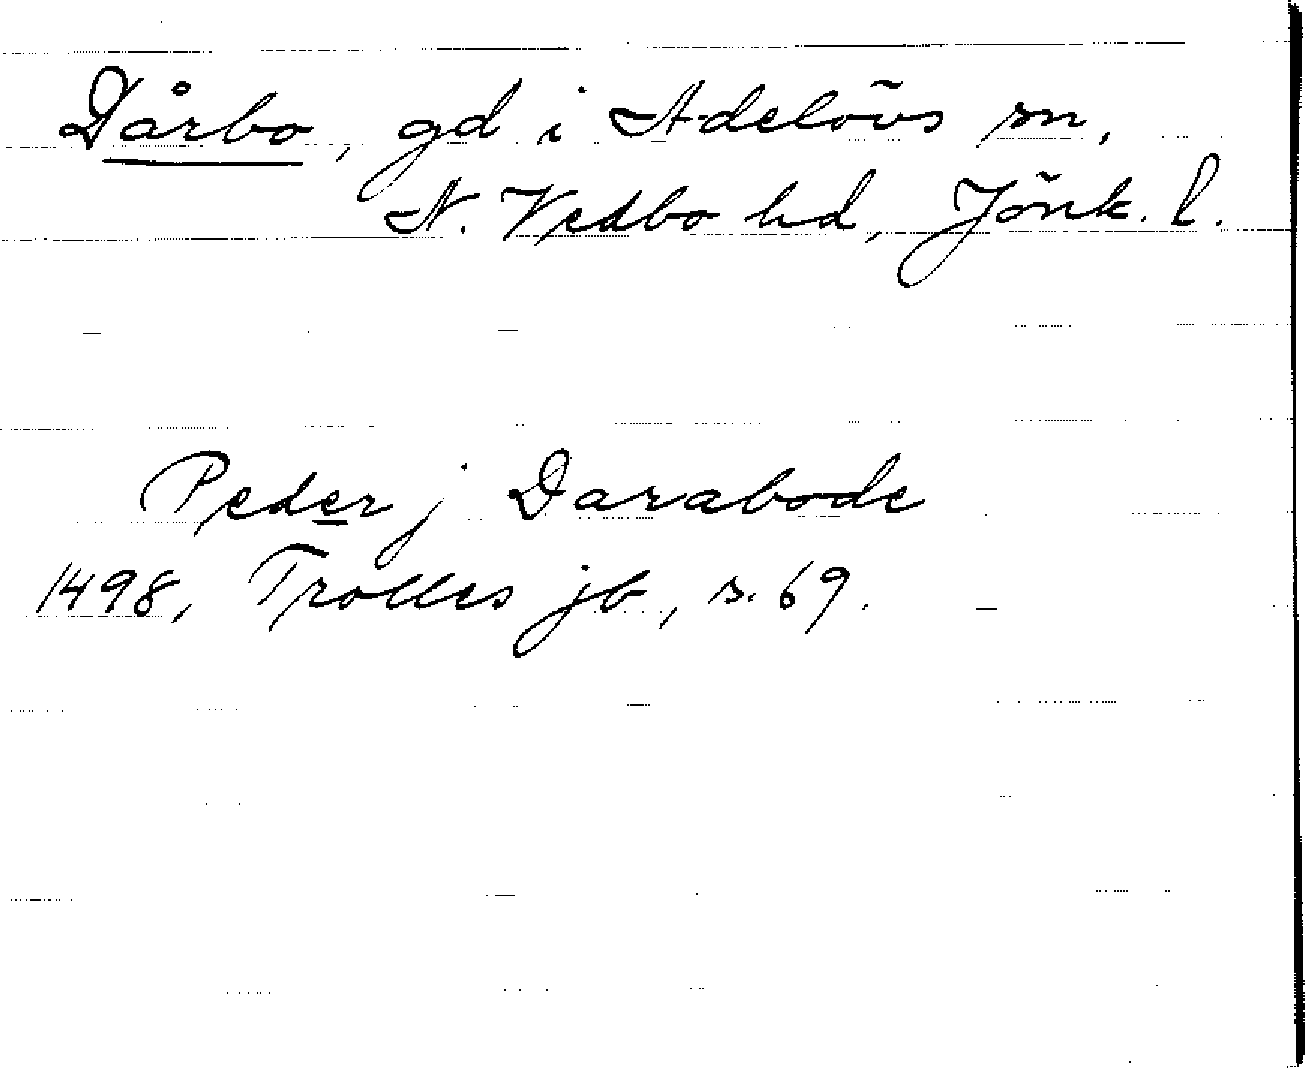 Dårbo, gd i Adelövs sn,
N. Vedbo hd, Jönk. l.
Peder j Darabode
1498, Trolles jb, s. 69.